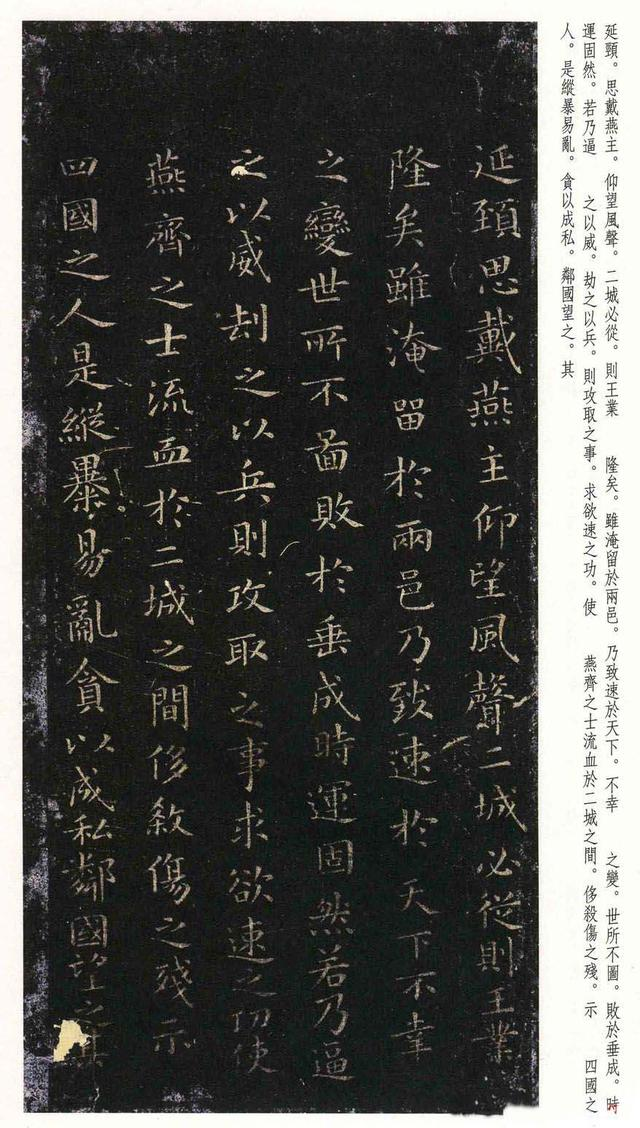 延頸。思戴燕主。仰望風聲。二城必從。則王業 隆矣。雖淹留於兩邑。乃致速於天下。不幸 之變。世所不圖。敗於垂成。時
運固然。若乃逼 之以威。劫之以兵。則攻取之事。求欲速之功。使 燕齊之士流血於二城之間。侈殺傷之殘。示 四國之
人。是縱暴易亂。貪以成私。鄰國望之。其
延頸思戴燕主仰望風聲二城必從則王業
隆矣雖淹留於兩邑乃致速於天下不幸
之變世所不啚敗於垂成時運固然若乃逼
之以威劫之以兵則攻取之事求欲速之功使
燕齊之士流血於二城之間侈殺傷之殘示
四國之人是縱暴易亂貪以成私鄰國望之其